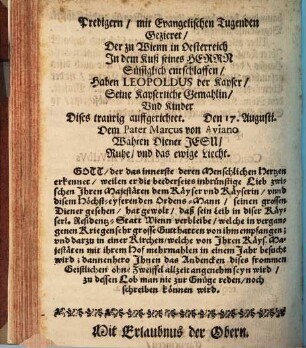 Predigern / mit Evangelischen Tugenden
Gezieret /
Der zu Wienn in Oesterreich
In dem Kuß seines HERRN
Süssiglich entschlaffen /
Haben LEOPOLDUS der Kayser /
Seine Kayserliche Gemahlin /
Und Kinder
Dises traurig auffgerichtet. Den 17. Augusti.
Dem Pater Marcus von Aviano
Wahren Diener JESU /
Ruhe / und das ewige Liecht.
GOTT / der das innerste deren Menschlichen Hertzen
erkennet / weilen er die beederseits inbrünstige Lieb zwi-
schen Ihren Majestäten dem Käyser und Käyserin / und
disem Höchst-eyferenden Ordens-Mann / seinen grossen
Diener gesehen / hat gewolt / daß sein Leib in diser Käy-
serl. Residentz-Staat Wienn verbleibe / welche in vergan-
genen Kriegen sehr grosse Gutthatten von ihm empfangen ;
und darzu in einer Kirchen / welche von Ihren Käys. Ma-
jestäten mit ihrem Hof mehrmahlen in einem Jahr besucht
wird ; dannenhero Ihnen das Andencken dises frommen
Geistlichen ohne Zweiffel allzeit angenehm seyn wird /
zu dessen Lob man nie zur Gnüge reden / noch
schreiben können wird.
Mit Erlaubnus der Obern.